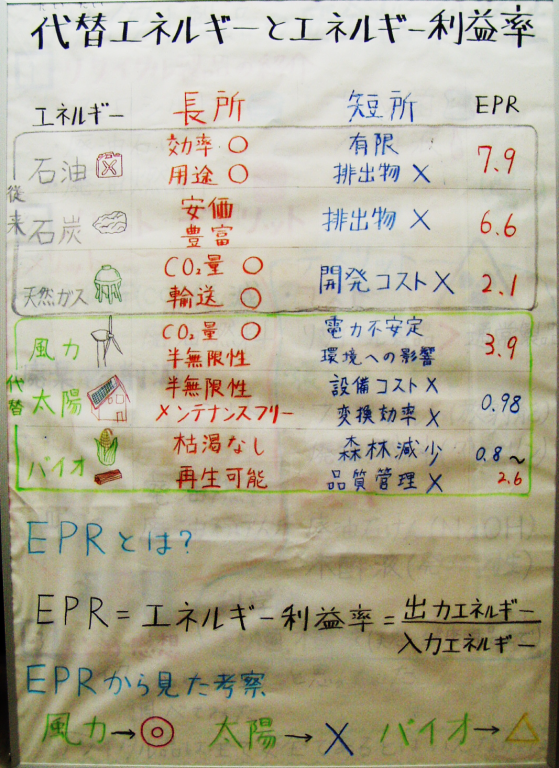 代替エネルギーとエネルギー利益率
エネルギー 長所 短所 EPR
従来
石油 効率 ○ 有限 7.9
用途 ○ 排出物 X
石炭 安価 排出物 X 6.6
豊富
天然ガス CO₂量 ○ 開発コスト X 2.1
輸送 ○
代替
風力 CO₂量 ○ 電力不安定 3.9
半無限性 環境への影響
太陽 半無限性 設備コスト X 0.98
メンテナンスフリー 変換効率 X
バイオ 枯渇なし 森林減少 0.8~
再生可能 品質管理 X 2.6
EPRとは?
EPR=エネルギー利益率=出力エネルギー/入力エネルギー
EPRから見た考察
風力→◎ 太陽→X バイオ→△